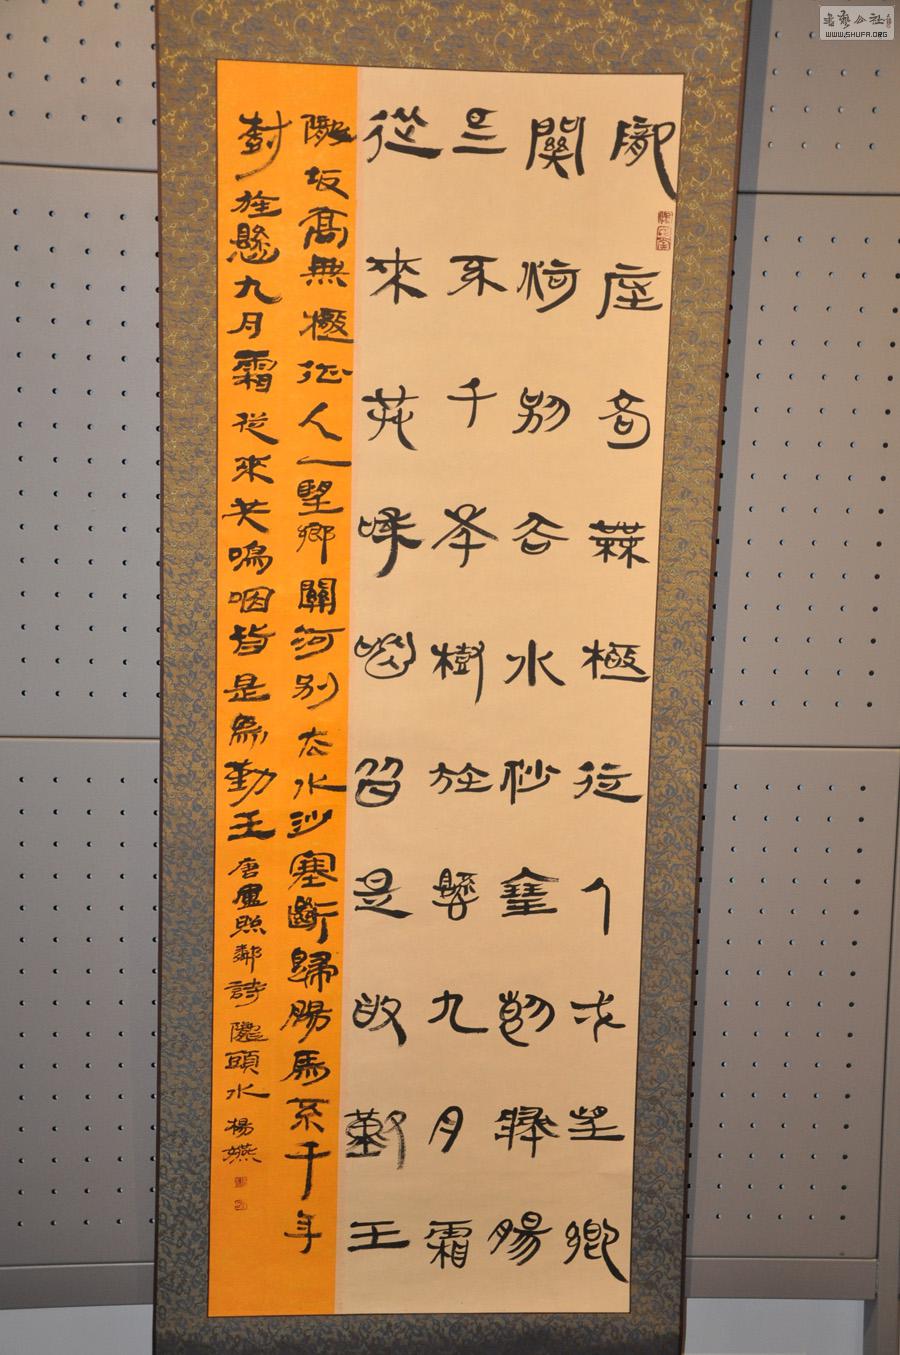 隴坂高無極征人一望鄉
關河別去水沙塞斷歸腸
馬系千年樹旌懸九月霜
從來共嗚咽皆是為勤王
隴坂高無極征人一望鄉關河別去水沙塞斷歸腸馬系千年
樹旌懸九月霜從來共鳴咽皆是為勤王唐盧照鄰詩隴頭水楊燕
WWW.SHUFA.ORG